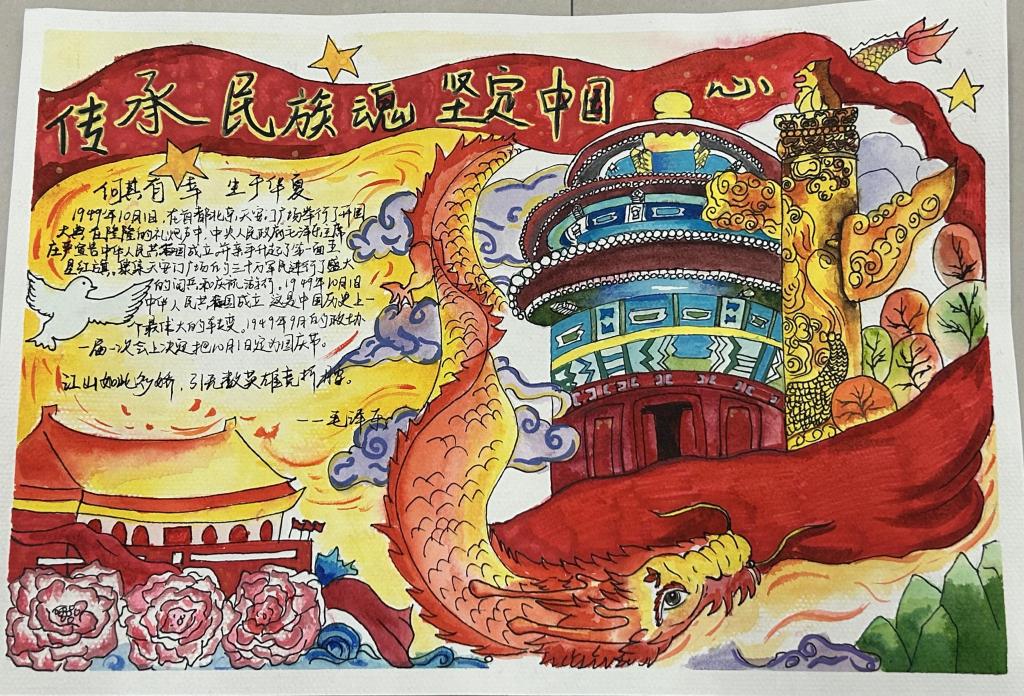 传承民族魂 坚定中国心
何其有幸 生于华夏
1949年10月1日,在首都北京天安门广场举行了开国
大典,在隆隆的礼炮声中,中央人民政府毛泽东主席
庄严宣告中华人民共和国成立,并亲手升起了第一面五
星红旗。聚集天安门广场的三十万军民进行了盛大
的阅兵和庆祝游行。1949年10月1日
中华人民共和国成立,这是中国历史上一
个最伟大的转变。1949年9月的政协
一届一次会上决定把10月1日定为国庆节。
江山如此多娇,引无数英雄竞折腰。
——毛泽东